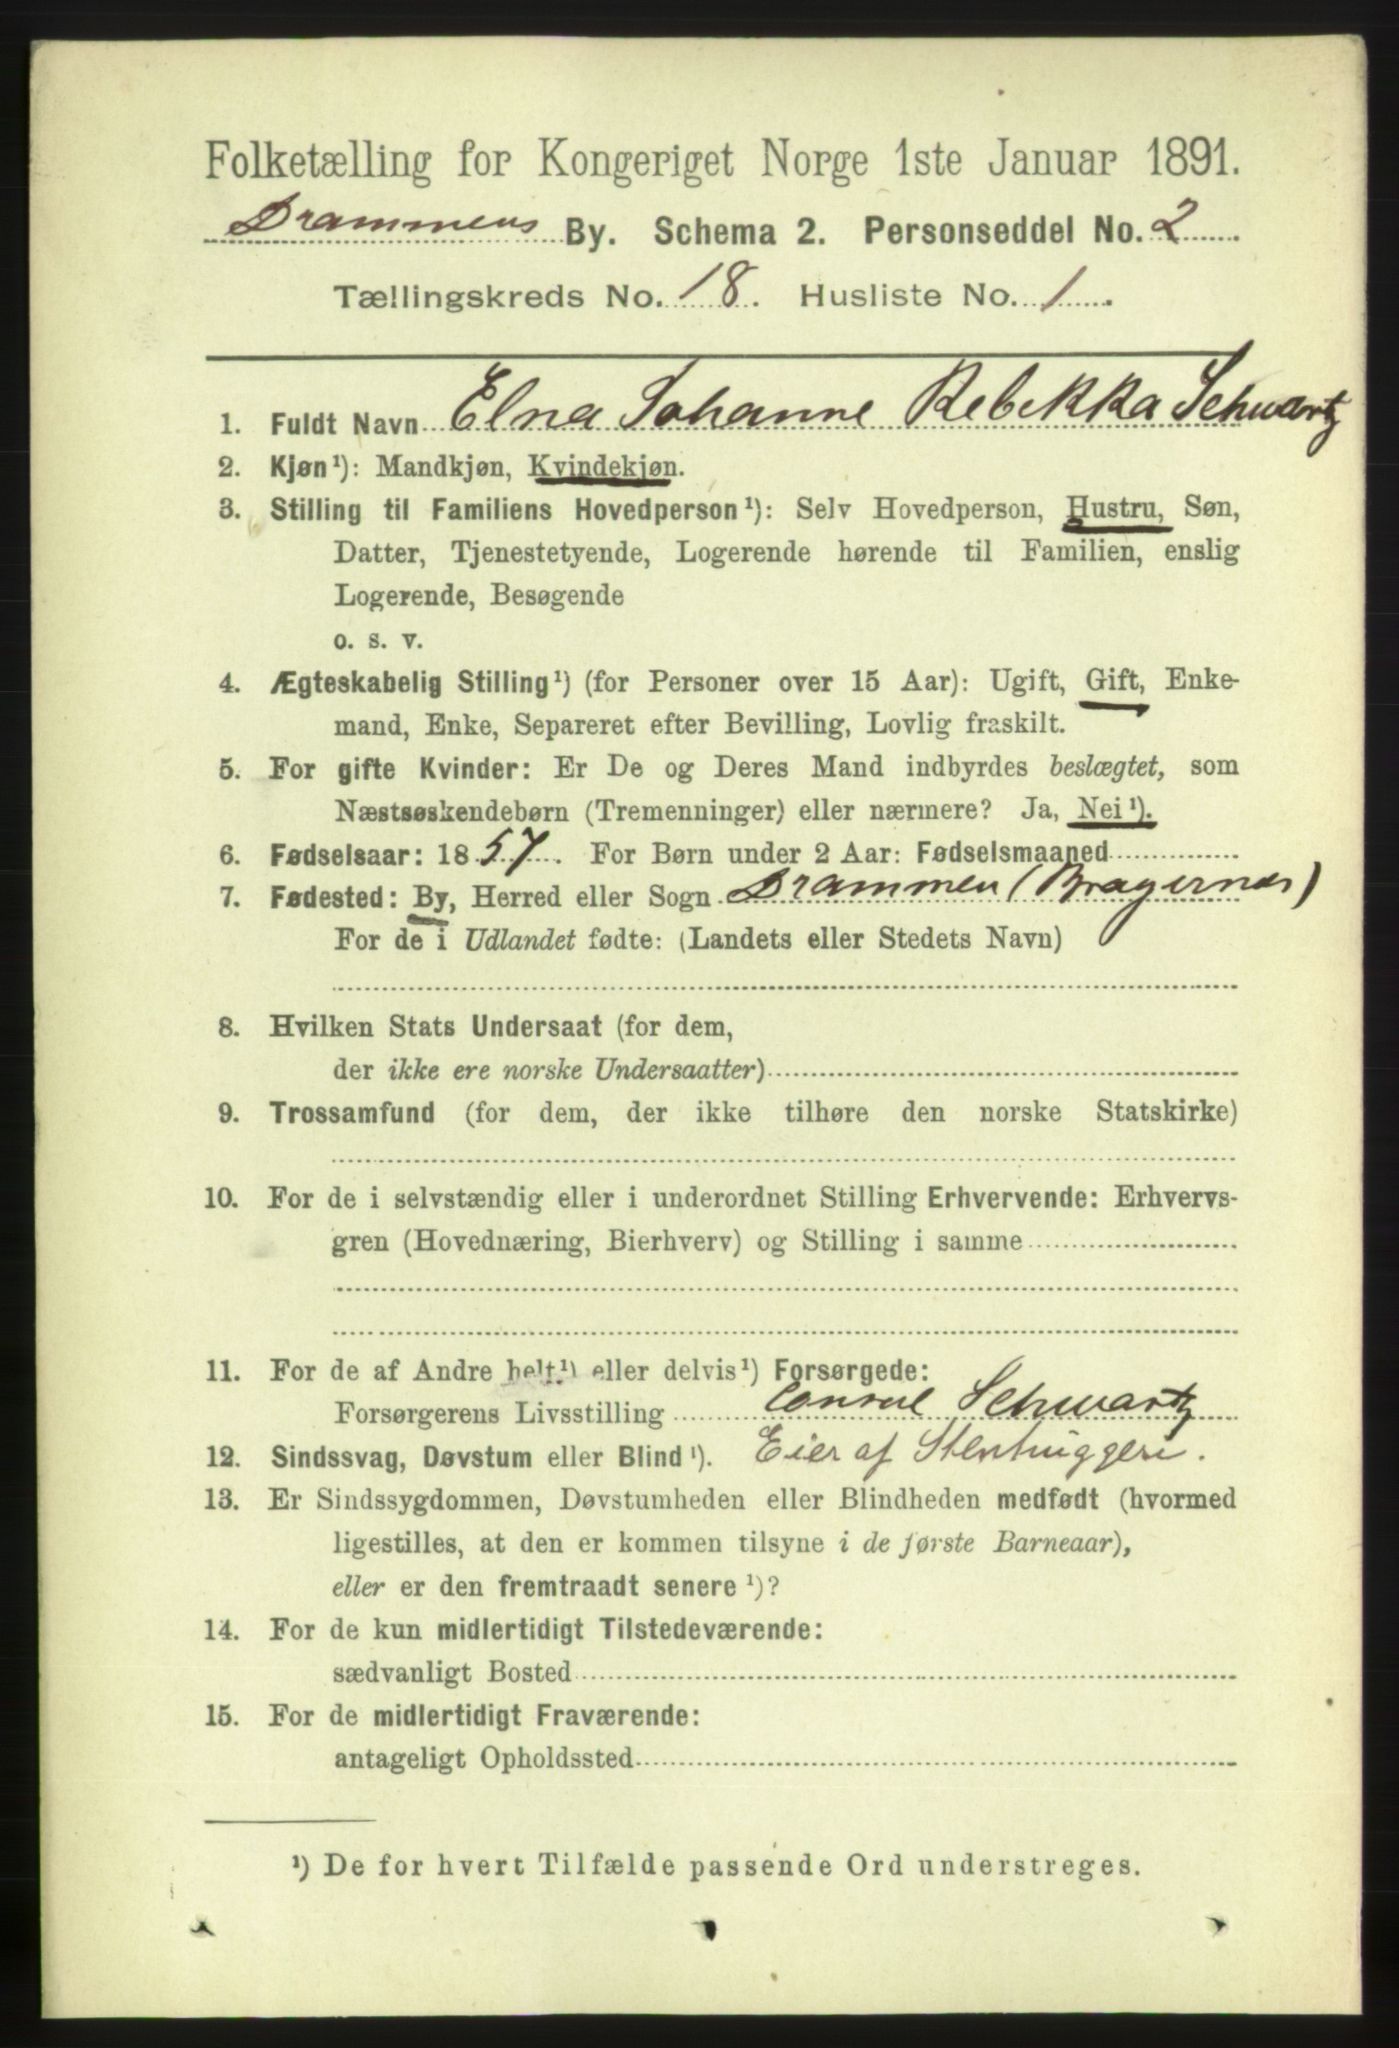 Folketælling for Kongeriget Norge 1ste Januar 1891.
Drammens By. Schema 2. Personseddel No. 2
Tællingskreds No. 18. Husliste No. 1.
1. Fuldt Navn Elna Johanne Rebekka Schwartz
2. Kjøn¹): Mandkjøn, Kvindekjøn.
3. Stilling til Familiens Hovedperson¹): Selv Hovedperson, Hustru, Søn,
Datter, Tjenestetyende, Logerende hørende til Familien, enslig
Logerende, Besøgende
o. s. v.
4. Ægteskabelig Stilling¹) (for Personer over 15 Aar): Ugift, Gift, Enke-
mand, Enke, Separeret efter Bevilling, Lovlig fraskilt.
5. For gifte Kvinder: Er De og Deres Mand indbyrdes beslægtet, som
Næstsøskendebørn (Tremenninger) eller nærmere? Ja, Nei¹).
6. Fødselsaar: 1857. For Børn under 2 Aar: Fødselsmaaned
7. Fødested: By, Herred eller Sogn Drammen (Bragernes)
For de i Udlandet fødte: (Landets eller Stedets Navn)
8. Hvilken Stats Undersaat (for dem,
der ikke ere norske Undersaatter)
9. Trossamfund (for dem, der ikke tilhøre den norske Statskirke)
10. For de i selvstændig eller i underordnet Stilling Erhvervende: Erhvervs-
gren (Hovednæring, Bierhverv) og Stilling i samme
11. For de af Andre helt¹) eller delvis¹) Forsørgede:
Forsørgerens Livsstilling Conrad Schwartz
12. Sindssvag, Døvstum eller Blind¹). Eier af Stenhuggeri.
13. Er Sindssygdommen, Døvstumheden eller Blindheden medfødt (hvormed
ligestilles, at den er kommen tilsyne i de første Barneaar),
eller er den fremtraadt senere¹)?
14. For de kun midlertidigt Tilstedeværende:
sædvanligt Bosted
15. For de midlertidigt Fraværende:
antageligt Opholdssted
¹) De for hvert Tilfælde passende Ord understreges.